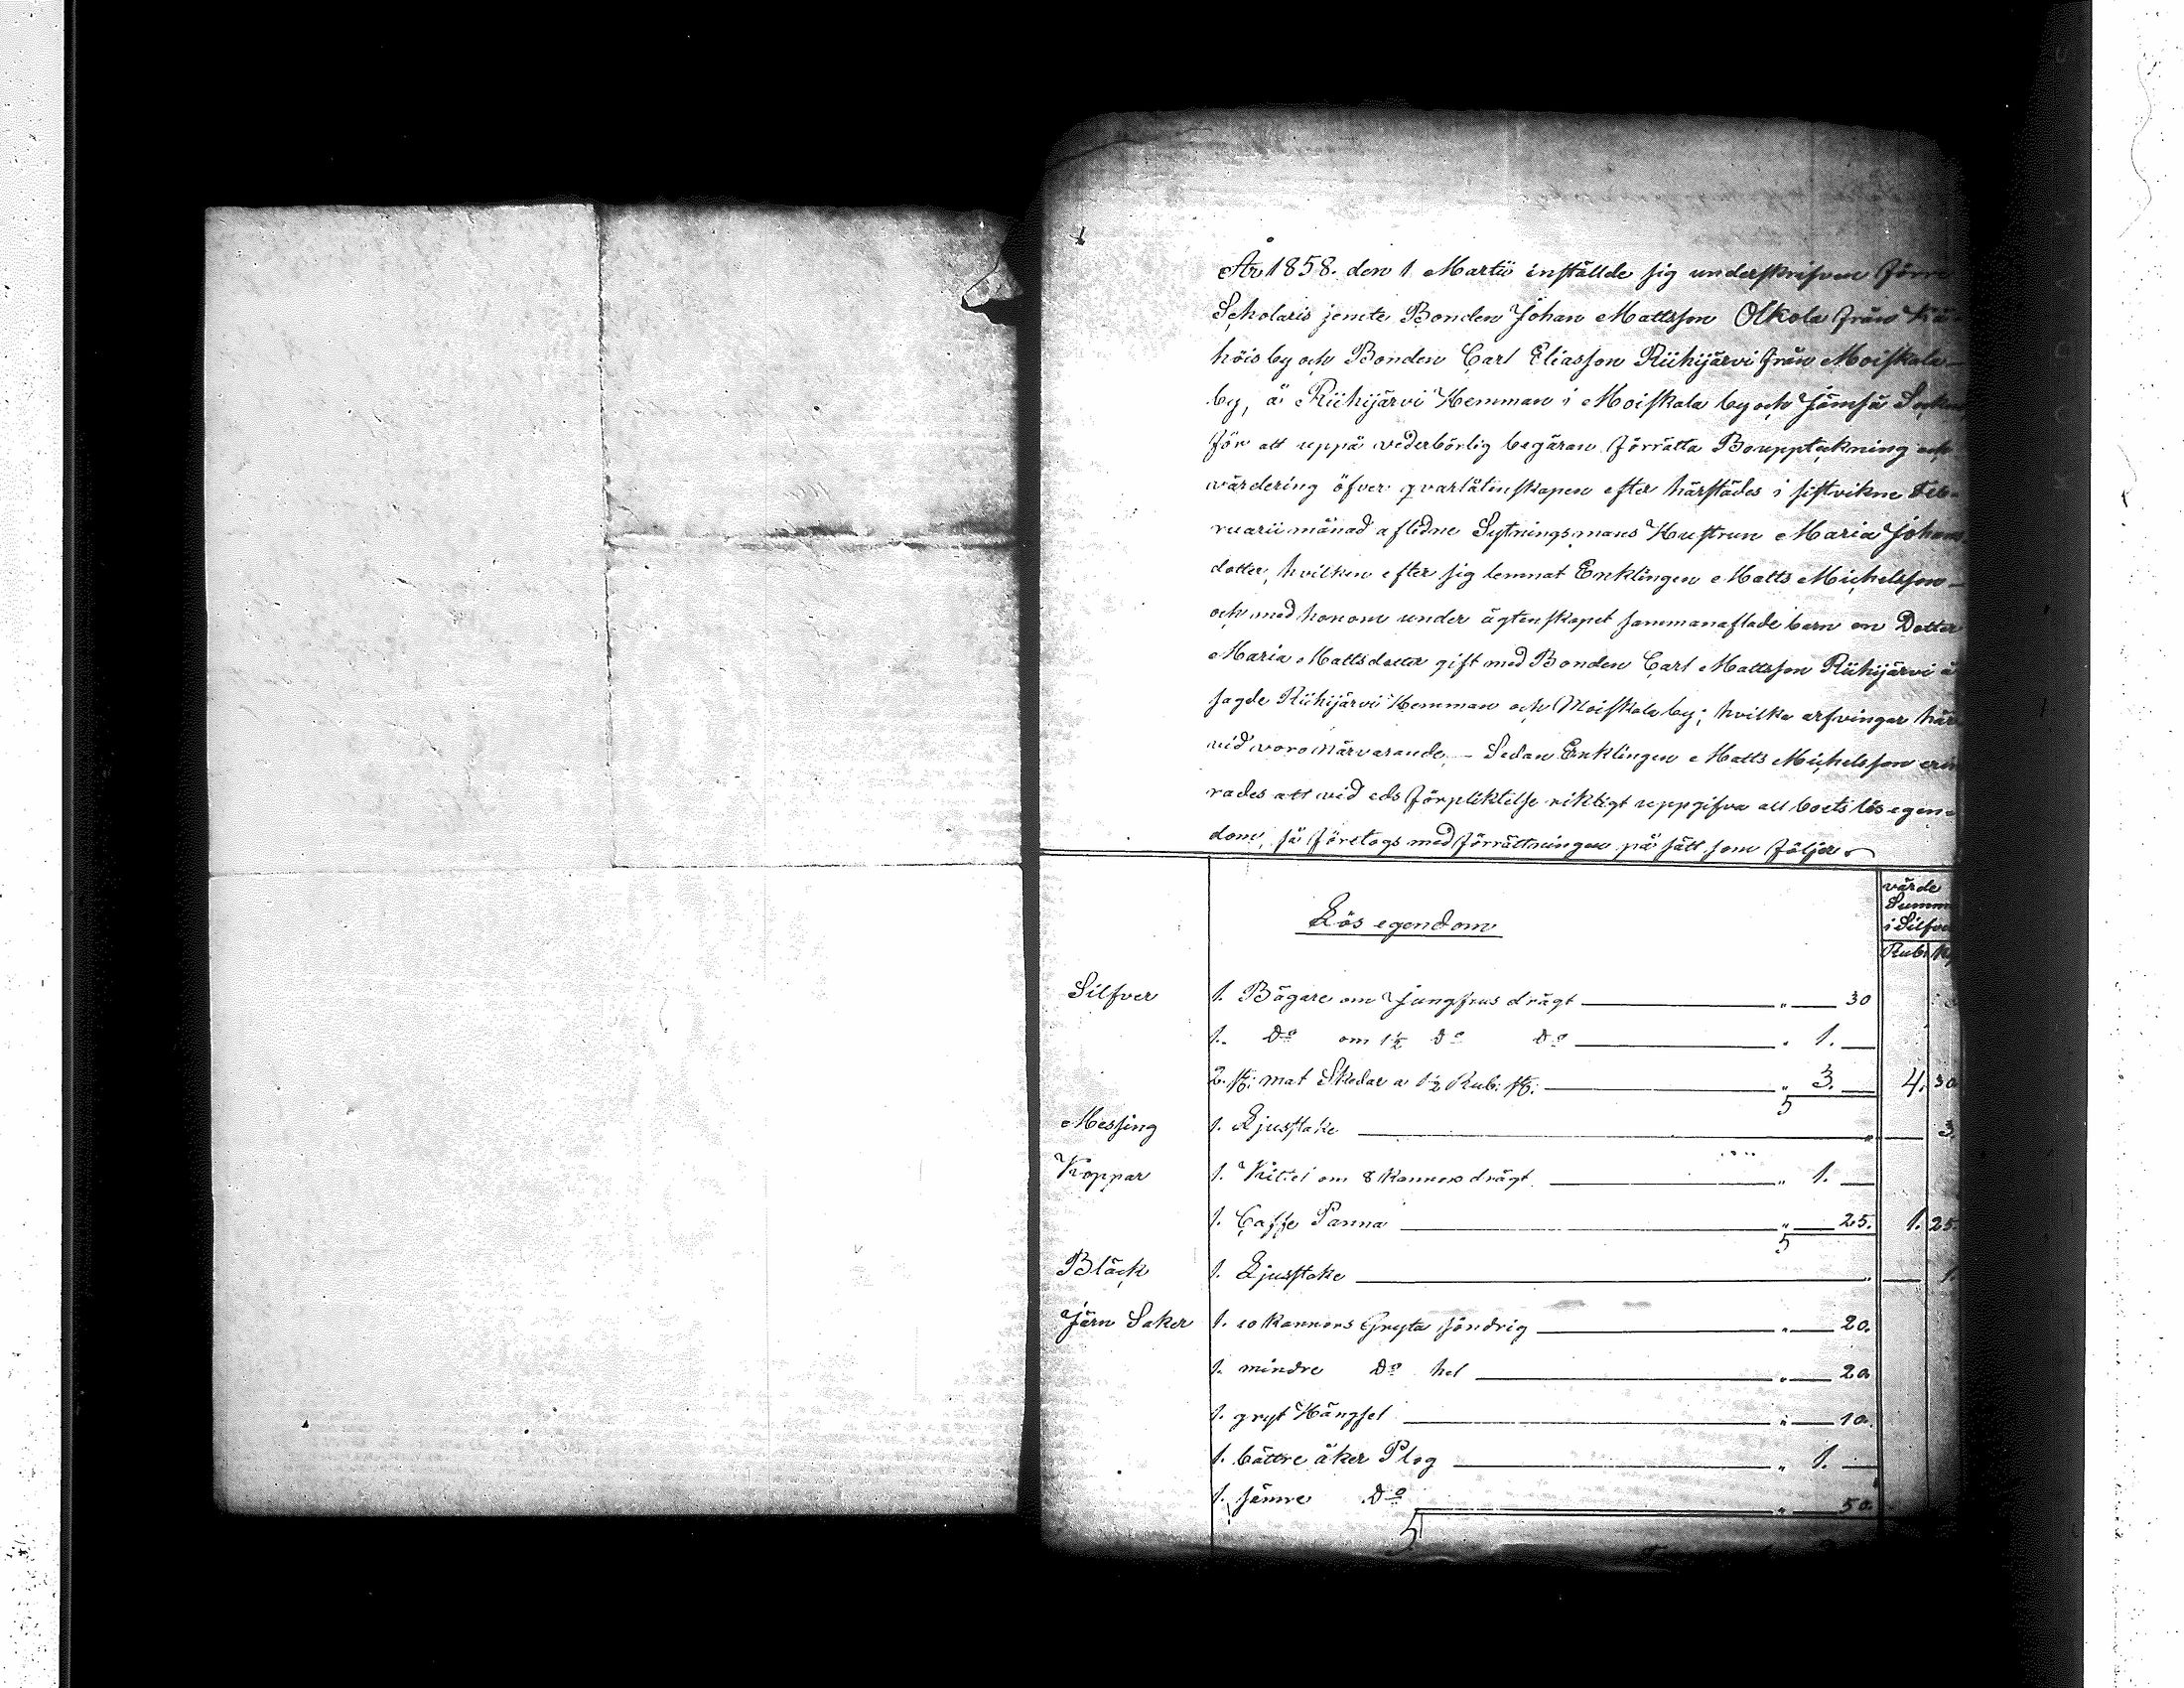 År 1858. den 1 Martii inställde sig underskrifven Förre
Scholaris jemte Bonden Johan Mattsson Olkola från Kä-
höis by och Bonden Carl Eliasson Riihijärvi från Moiskala
by, å Riihijärvi Hemman i Moiskala by och Jämsä Socken
för att uppå vederbörlig begäran förrätta Bouppteckning och
värdering öfver qvarlåtinskapen efter härstädes i sistvikne Feb-
ruarii månad aflidne Sytningsmans Hustrun Maria Johans
dotter, hvilken efter sig lemnat Enklingen Matts Michelsson
och med honom under ägtenskapet sammanaflade barn en Dotter
Maria Mattsdotter gift med Bonden Carl Mattsson Riihijärvi å
sagde Riihijärvi Hemman och Moiskala by; hvilka arfvingar här
vid voro närvarande. - Sedan Enklingen Matts Michelsson erin
rades att vid eds förpliktelse riktigt uppgifva all boets lös egen-
dom, så företogs med förrättningen på sätt som följer.
värde
Summa
i Silfver
Lös egendom
Rub. Kp
Silfver 1. Bägare om Jungfrus drägt " 30
1. Do om 1½ Do Do " 1.
2. st: mat Skedar a 1½ Rub: st: " 3. 4. 30
Messing 1. Ljusstake " 3.
Koppar 1. Kittel om 8 Kannors drägt " 1.
1. Caffe Panna " 25. 1. 25.
Bläck 1. Ljusstake " 1.
Järn Saker 1. 10 Kannors Gryta söndrig " 20.
1. mindre Do hel " 20
1. gryt Hängsel " 10.
1. bättre åker Plog " 1.
1. sämre Do " 50.